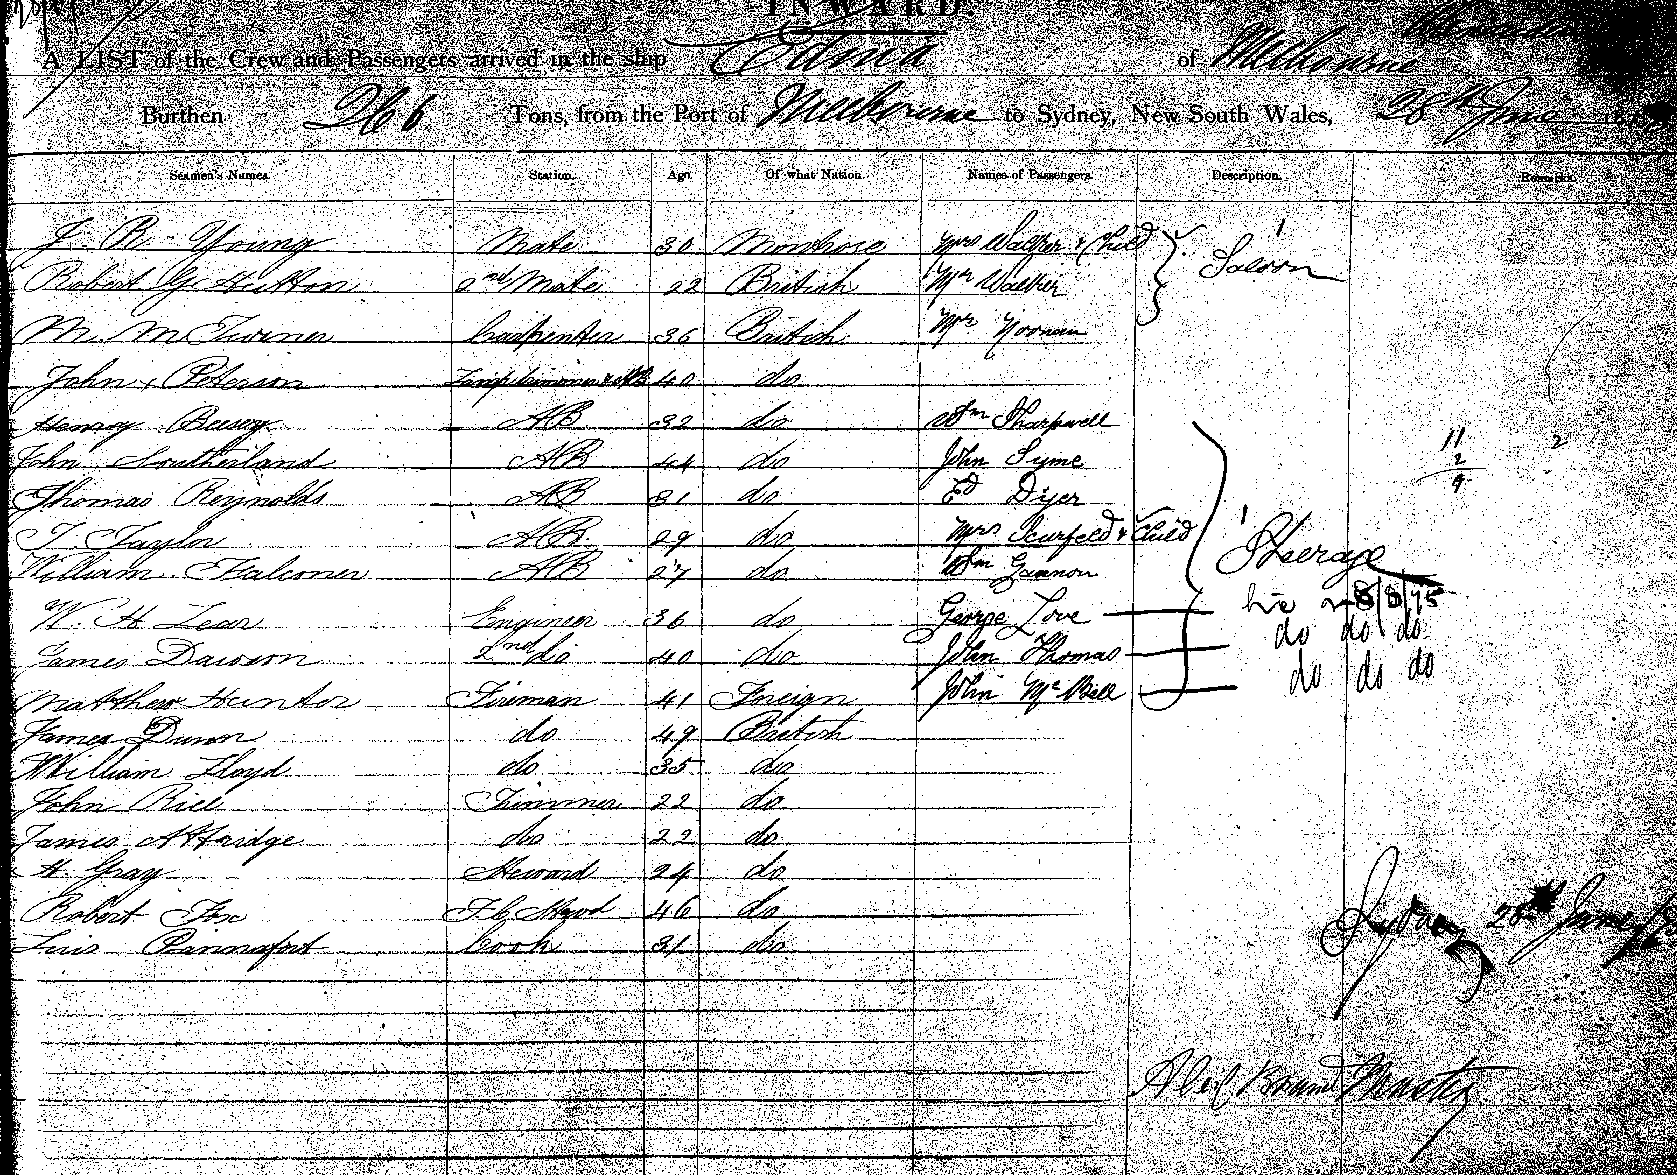 INWARD
A LIST of the Crew and Passengers arrived in the ship Edina of Melbourne
Burthen 266 Tons, from the Port of Melbourne to Sydney, New South Wales, 28th June
Seamen's Names. Station. Age. Of what Nation. Names of Passengers. Description. Remarks.
J. R. Young Mate 30 Montrose Mrs Walker & Child Saloon
Robert G Hutton 2nd Mate 22 British Mr Walker
M. M Turner Carpenter 36 British Mr Noonan
John Peterson Lamptrimmer & AB 40 do
Henry AB 32 do Wm Sharpwell
John Southerland AB 44 do John Syme 11 2
Thomas Reynolds AB 31 do Ed Dyer 2 9
T. Taylor AB 29 do Mrs Scurfeld & Child Steerage
William Falconer AB 27 do Wm Gannon
W. H Lear Engineer 36 do George Love 8/8/75
James Dawson 2nd do 40 do John Thomas do do do
Matthew Hunter Fireman 41 Foreign John McBill do do do
James Dunn do 49 British
William Lloyd do 35 do
John Rice Trimmer 22 do
James Attridge do 22 do
H. Gray Steward 24 do
Robert Fox F C Stewd 46 do
Luis Cook 31 do
Sydney 28th June
Alex Master